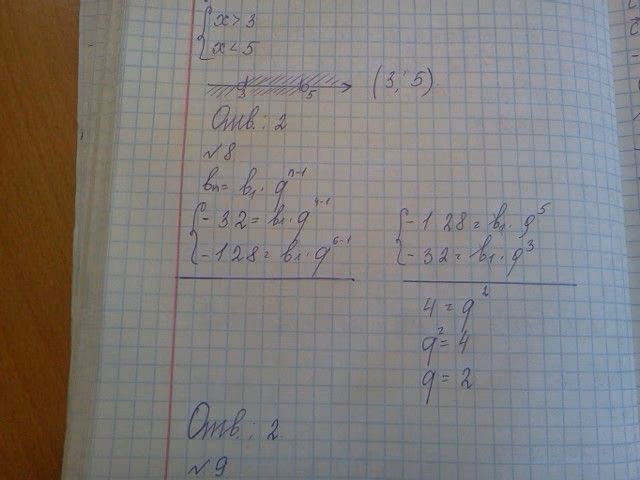 { x > 3
{ x < 5
3 5 (3; 5).
Отв.: 2
№8
bₙ = b₁ · qⁿ⁻¹
{ -32 = b₁ · q⁴⁻¹
{ -128 = b₁ · q⁶⁻¹
{ -128 = b₁ · q⁵
{ -32 = b₁ · q³
4 = q²
q² = 4
q = 2
Отв.: 2.
№9